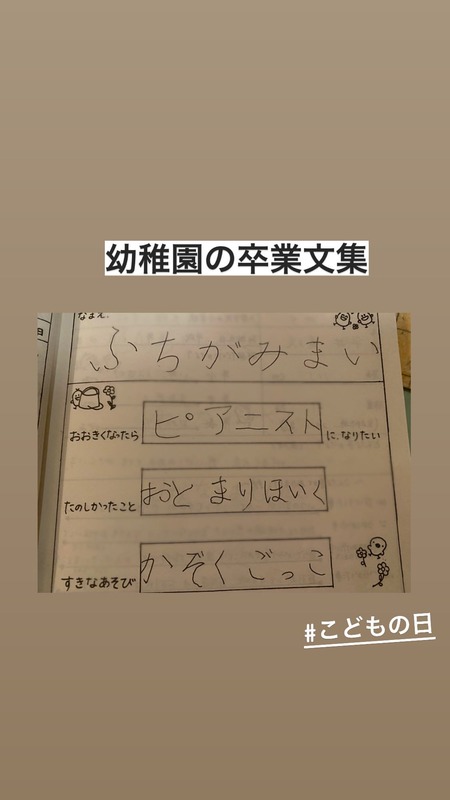 幼稚園の卒業文集
なまえ.
ふちがみまい
おおきくなったら ピアニスト に、なりたい
たのしかったこと おとまりほいく
すきなあそび かぞくごっこ
#こどもの日